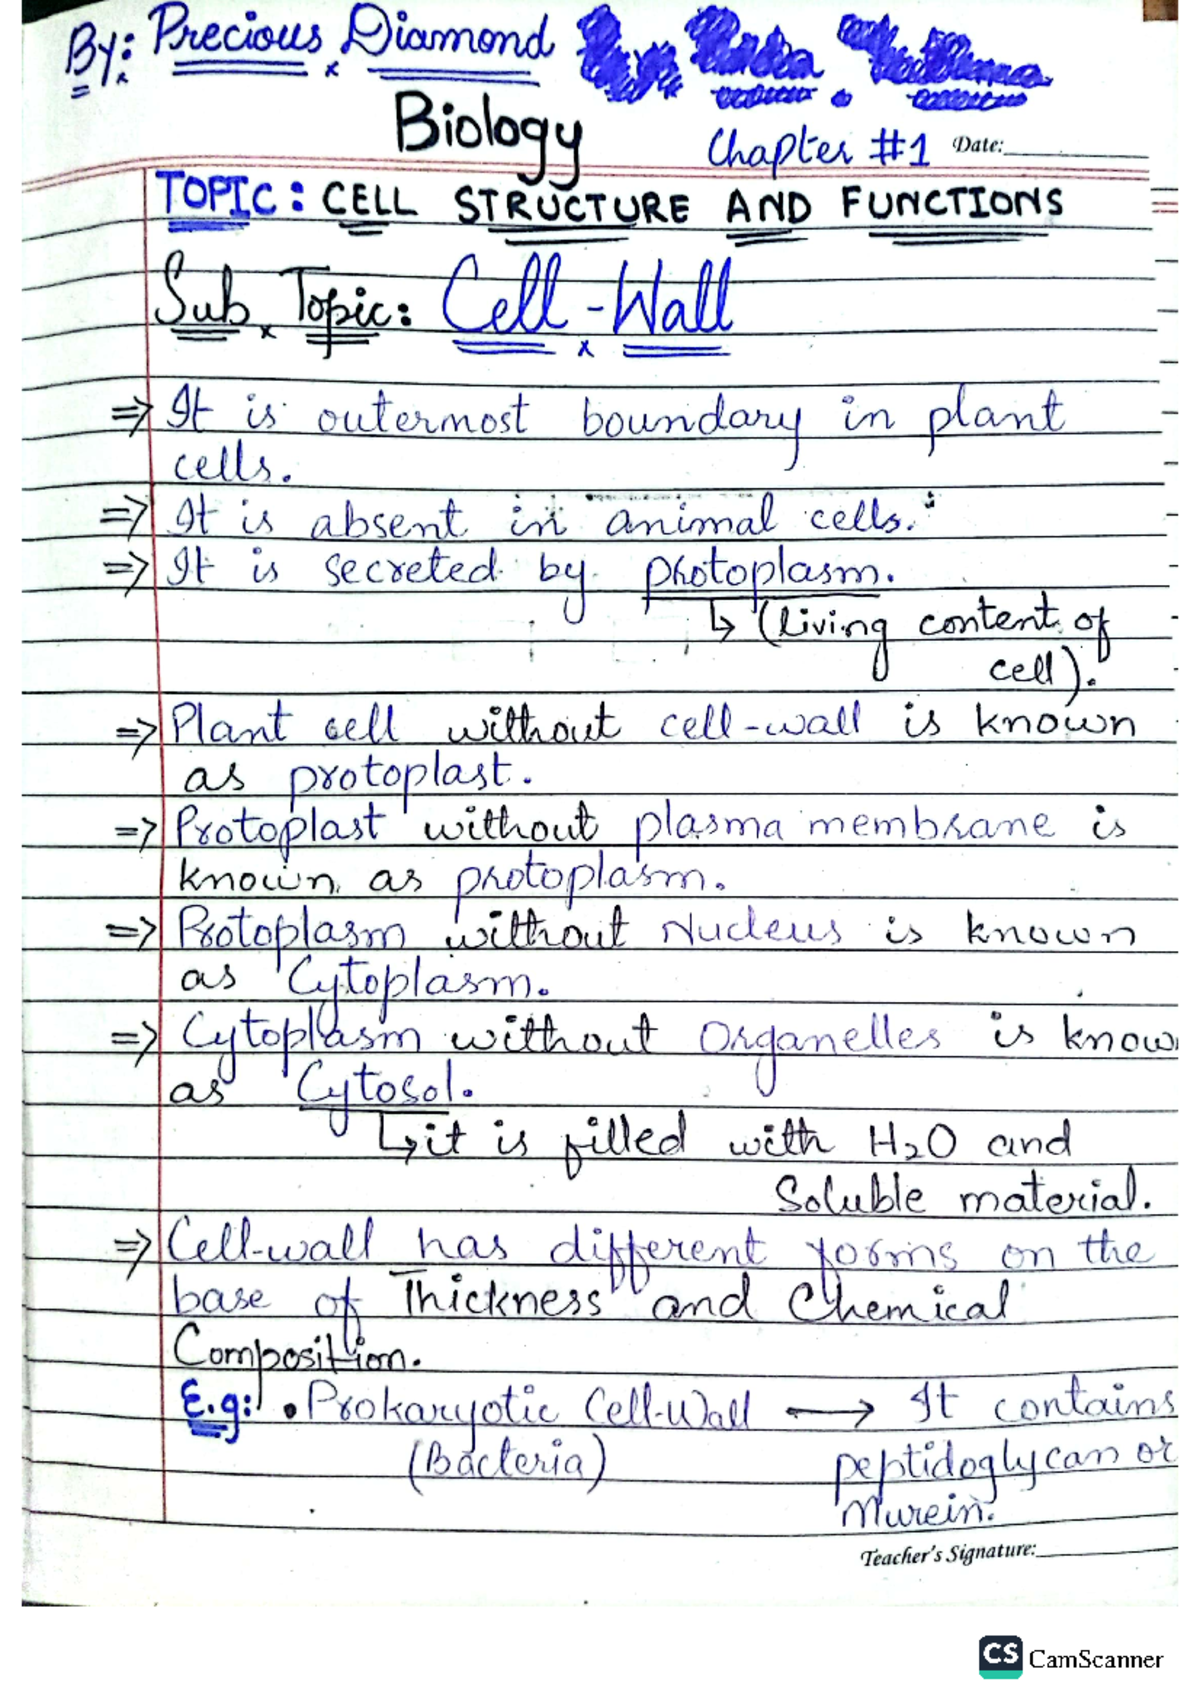 By: Precious Diamond
Biology
Chapter #1 Date:
TOPIC: CELL STRUCTURE AND FUNCTIONS
Sub Topic: Cell-Wall
⇒ It is outermost boundary in plant
cells.
⇒ It is absent in animal cells.
⇒ It is secreted by protoplasm.
↳ (living content of
cell).
⇒ Plant cell without cell-wall is known
as protoplast.
⇒ Protoplast without plasma membrane is
known as protoplasm.
⇒ Protoplasm without Nucleus is known
as Cytoplasm.
⇒ Cytoplasm without Organelles is know
as Cytosol.
↳ it is filled with H₂O and
Soluble material.
⇒ Cell-wall has different forms on the
base of Thickness and Chemical
Composition.
E.g: • Prokaryotic Cell-Wall → It contains
(Bacteria) peptidoglycan or
Murein.
Teacher's Signature:
CS CamScanner